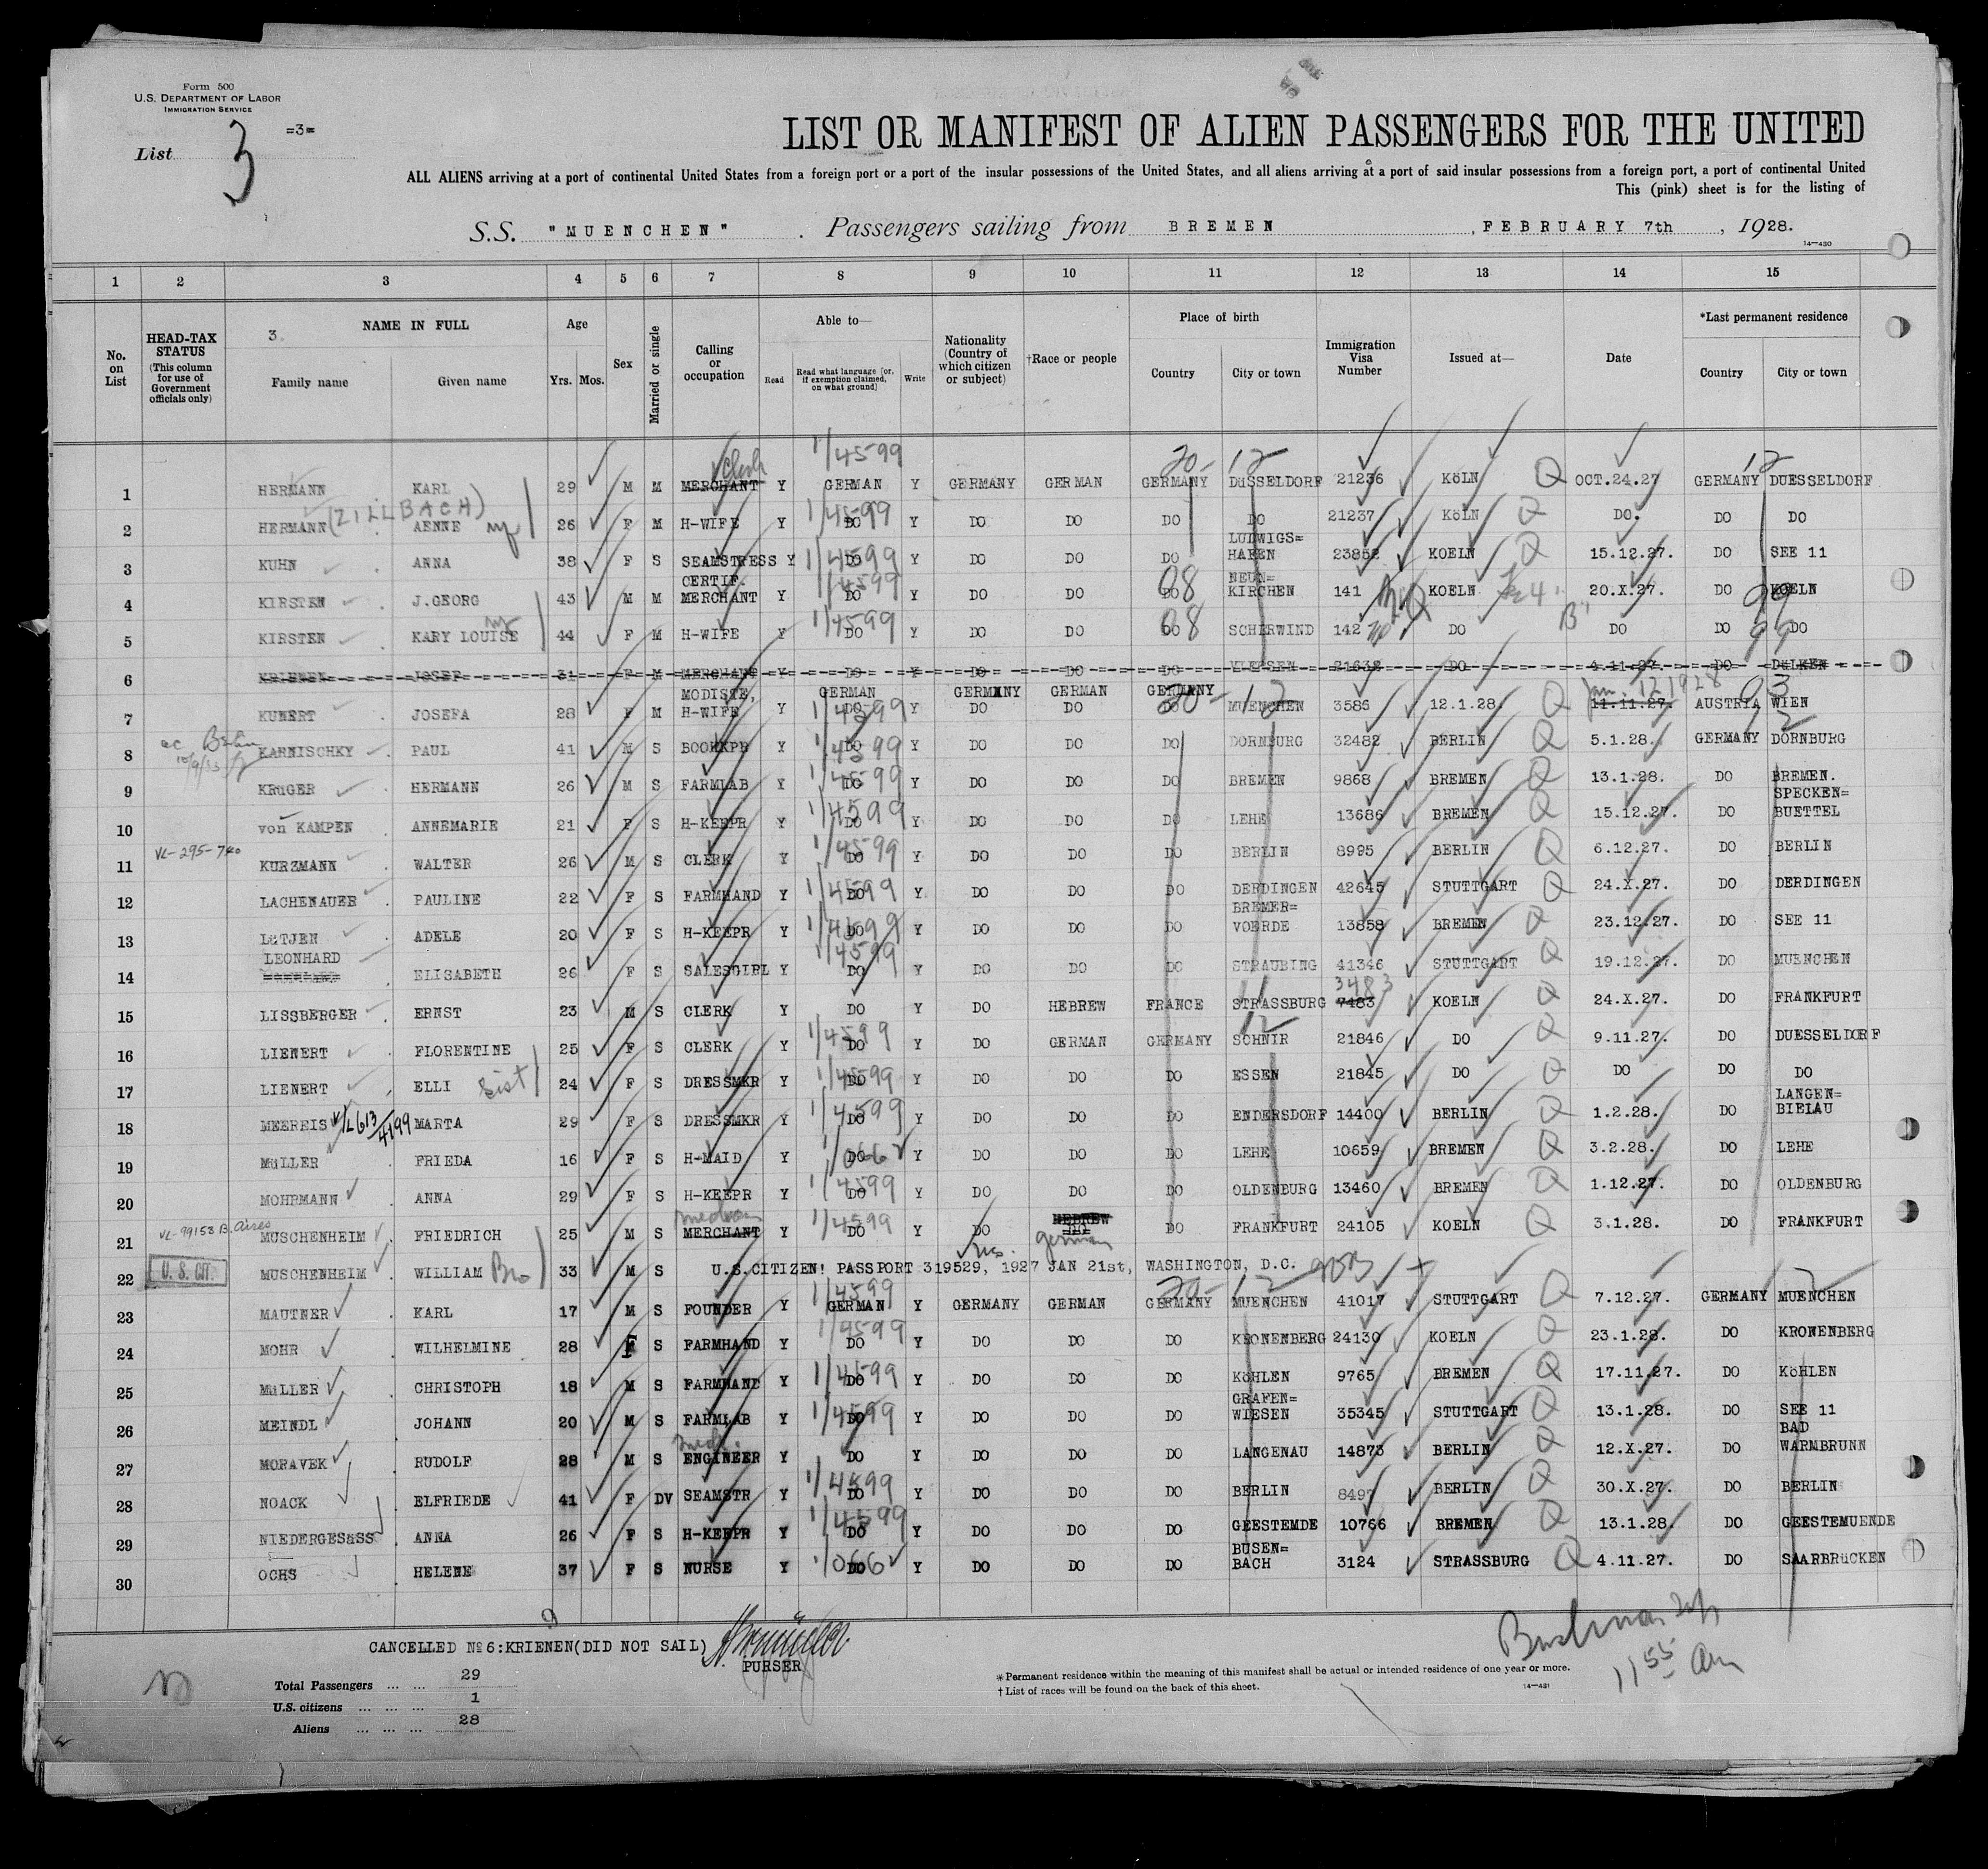 Form 500
U.S. DEPARTMENT OF LABOR
IMMIGRATION SERVICE
=3=
List 3
LIST OR MANIFEST OF ALIEN PASSENGERS FOR THE UNITED
ALL ALIENS arriving at a port of continental United States from a foreign port or a port of the insular possessions of the United States, and all aliens arriving at a port of said insular possessions from a foreign port, a port of continental United
This (pink) sheet is for the listing of
S.S. "MUENCHEN" . Passengers sailing from BREMEN , FEBRUARY 7th , 1928.
14—430
1 2 3 4 5 6 7 8 9 10 11 12 13 14 15
No. on List
HEAD-TAX STATUS (This column for use of Government officials only)
3. NAME IN FULL
Family name Given name
Age
Yrs. Mos.
Sex
Married or single
Calling or occupation
Able to—
Read Read what language [or, if exemption claimed, on what ground] Write
Nationality (Country of which citizen or subject)
†Race or people
Place of birth
Country City or town
Immigration Visa Number
Issued at—
Date
*Last permanent residence
Country City or town
1/4599 20- 12 12
1 HERMANN KARL 29 M M MERCHANT Clerk Y GERMAN Y GERMANY GERMAN GERMANY DüSSELDORF 21236 KöLN Q OCT.24.27 GERMANY DUESSELDORF
2 HERMANN (ZILLBACH) AENNE 26 F M H-WIFE Y 1/4599 DO Y DO DO DO DO 21237 KöLN Q DO. DO DO
3 KUHN ANNA 38 F S SEAMSTRESS Y 1/4599 DO Y DO DO DO LUDWIGS=HAFEN 23852 KOELN Q 15.12.27. DO SEE 11
4 KIRSTEN J.GEORG 43 M M CERTIF. MERCHANT Y 1/4599 DO Y DO DO 08 DO NEUN=KIRCHEN 141 KOELN 20.X.27. DO KOELN 99
5 KIRSTEN KARY LOUISE 44 F M H-WIFE Y 1/4599 DO Y DO DO 08 DO SCHERWIND 142 DO DO DO DO 99
6 KRIENEN JOSEF 31 F M MERCHANT Y DO Y DO DO DO VIERSEN 21632 DO 4.11.27. DO DüLKEN
7 KUNERT JOSEFA 28 F M MODISTE, H-WIFE Y GERMAN 1/4599 DO Y GERMANY DO GERMAN DO GERMANY DO 20- 12 MUENCHEN 3586 12.1.28. Q 11.11.27. Jan. 12 1928 AUSTRIA WIEN 03
8 KARNISCHKY PAUL 41 M S BOOKKPR Y 1/4599 DO Y DO DO DO DORNBURG 32482 BERLIN Q 5.1.28. GERMANY DORNBURG 12
9 KRüGER HERMANN 26 M S FARMLAB Y 1/4599 DO Y DO DO DO BREMEN 9868 BREMEN Q 13.1.28. DO BREMEN.
10 von KAMPEN ANNEMARIE 21 F S H-KEEPR Y 1/4599 DO Y DO DO DO LEHE 13686 BREMEN Q 15.12.27. DO SPECKEN=BUETTEL
VL-295-740
11 KURZMANN WALTER 26 M S CLERK Y 1/4599 DO Y DO DO DO BERLIN 8995 BERLIN Q 6.12.27. DO BERLIN
12 LACHENAUER PAULINE 22 F S FARMHAND Y 1/4599 DO Y DO DO DO DERDINGEN 42645 STUTTGART Q 24.X.27. DO DERDINGEN
13 LüTJEN ADELE 20 F S H-KEEPR Y 1/4599 DO Y DO DO DO BREMER=VOERDE 13858 BREMEN Q 23.12.27. DO SEE 11
14 LEONHARD ELISABETH 26 F S SALESGIRL Y 1/4599 DO Y DO DO DO STRAUBING 41346 STUTTGART Q 19.12.27. DO MUENCHEN
15 LISSBERGER ERNST 23 M S CLERK Y DO Y DO HEBREW FRANCE STRASSBURG 11 7483 3483 KOELN Q 24.X.27. DO FRANKFURT
16 LIENERT FLORENTINE 25 F S CLERK Y 1/4599 DO Y DO GERMAN GERMANY SCHNIR 12 21846 DO Q 9.11.27. DO DUESSELDORF
17 LIENERT ELLI Sist 24 F S DRESSMKR Y 1/4599 DO Y DO DO DO ESSEN 21845 DO Q DO DO DO
18 MEEREIS VL613/4199 MARTA 29 F S DRESSMKR Y 1/4599 DO Y DO DO DO ENDERSDORF 14400 BERLIN Q 1.2.28. DO LANGEN=BIELAU
19 MüLLER FRIEDA 16 F S H-MAID Y 1/066 DO Y DO DO DO LEHE 10659 BREMEN Q 3.2.28. DO LEHE
20 MOHRMANN ANNA 29 F S H-KEEPR Y 1/4599 DO Y DO DO DO OLDENBURG 13460 BREMEN Q 1.12.27. DO OLDENBURG
VL-99153 B. Aires
21 MUSCHENHEIM FRIEDRICH 25 M S MERCHANT Y 1/4599 DO Y DO HEBREW DO german DO FRANKFURT 24105 KOELN Q 3.1.28. DO FRANKFURT
22 U. S. CIT. MUSCHENHEIM WILLIAM Bro 33 M S U.S.CITIZEN! PASSPORT 319529, 1927 JAN 21st, WASHINGTON, D.C.
23 MAUTNER KARL 17 M S FOUNDER Y 1/4599 GERMAN Y GERMANY GERMAN GERMANY 20- 12 MUENCHEN 41017 STUTTGART Q 7.12.27. GERMANY MUENCHEN 12
24 MOHR WILHELMINE 28 F S FARMHAND Y 1/4599 DO Y DO DO DO KRONENBERG 24130 KOELN Q 23.1.28. DO KRONENBERG
25 MüLLER CHRISTOPH 18 M S FARMHAND Y 1/4599 DO Y DO DO DO KöHLEN 9765 BREMEN Q 17.11.27. DO KöHLEN
26 MEINDL JOHANN 20 M S FARMLAB Y 1/4599 DO Y DO DO DO GRAFEN=WIESEN 35345 STUTTGART Q 13.1.28. DO SEE 11
27 MORAVEK RUDOLF 28 M S ENGINEER Y DO Y DO DO DO LANGENAU 14873 BERLIN Q 12.X.27. DO BAD WARMBRUNN
28 NOACK ELFRIEDE 41 F DV SEAMSTR Y 1/4599 DO Y DO DO DO BERLIN 8497 BERLIN Q 30.X.27. DO BERLIN
29 NIEDERGESäSS ANNA 26 F S H-KEEPR Y 1/4599 DO Y DO DO DO GEESTEMDE 10766 BREMEN Q 13.1.28. DO GEESTEMUENDE
30 OCHS HELENE 37 F S NURSE Y 1/066 DO Y DO DO DO BUSEN=BACH 3124 STRASSBURG Q 4.11.27. DO SAARBRüCKEN
CANCELLED No 6:KRIENEN(DID NOT SAIL)
PURSER
Total Passengers ... ... 29
U.S. citizens ... ... ... 1
Aliens ... ... ... 28
* Permanent residence within the meaning of this manifest shall be actual or intended residence of one year or more.
† List of races will be found on the back of this sheet.
14—431
11 55 Am